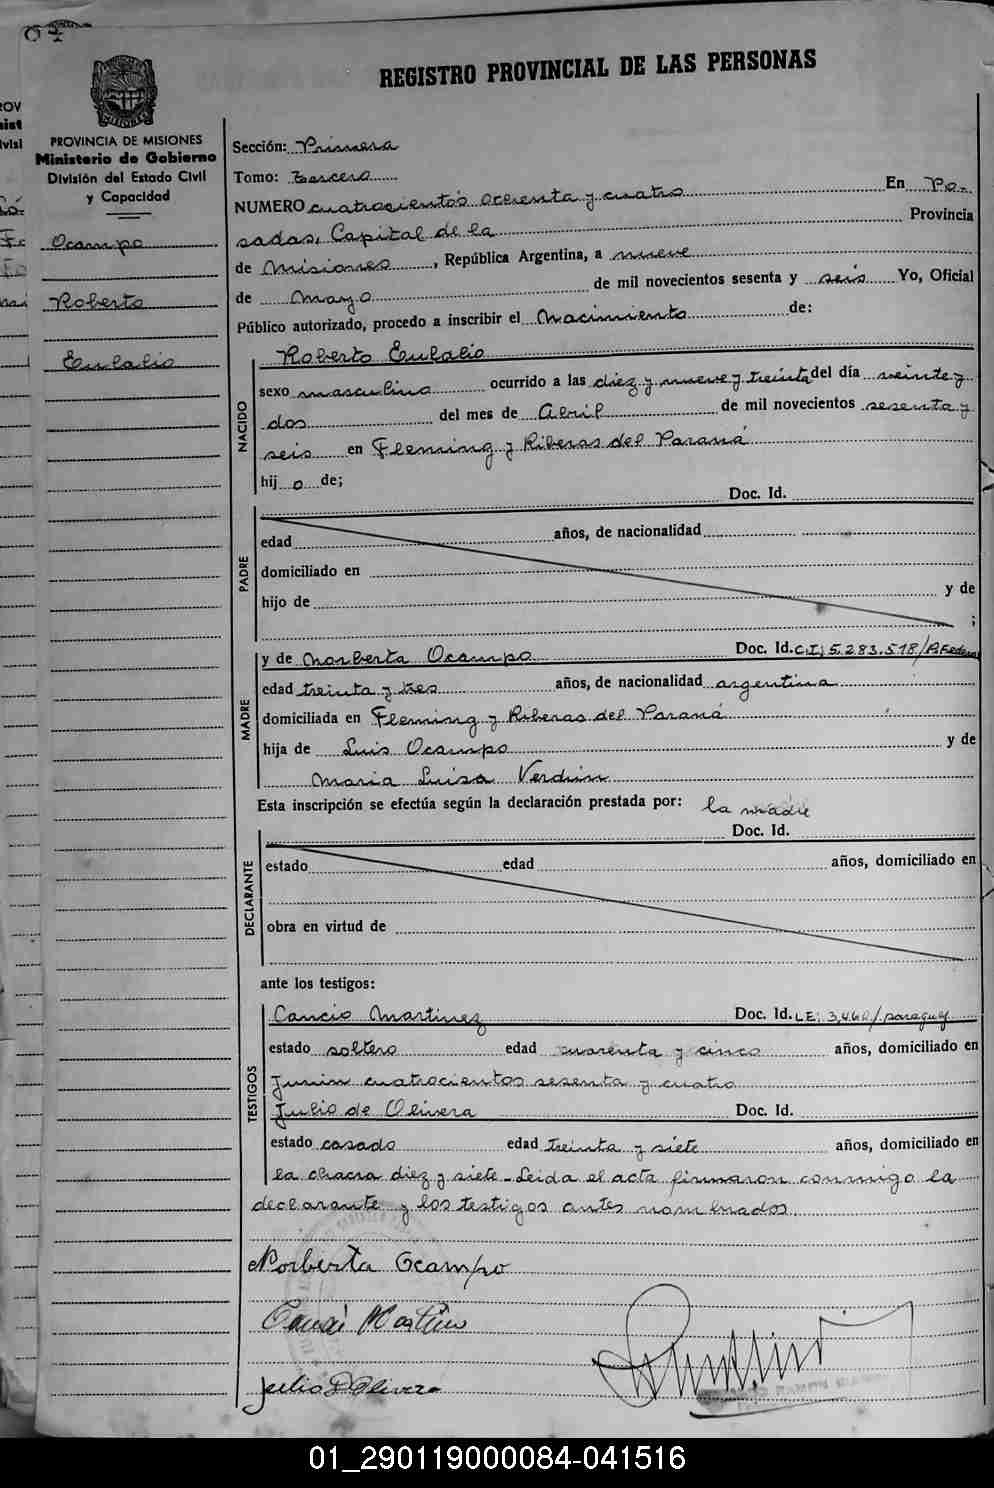 REGISTRO PROVINCIAL DE LAS PERSONAS
MISIONES
PROVINCIA DE MISIONES
Ministerio de Gobierno
División del Estado Civil
y Capacidad
Ocampo
Roberto
Eulalio
Sección: Primera
Tomo: Tercero
NUMERO cuatrocientos ochenta y cuatro En Po-
sadas, Capital de la Provincia
de Misiones, República Argentina, a nueve
de Mayo de mil novecientos sesenta y seis Yo, Oficial
Público autorizado, procedo a inscribir el Nacimiento de:
NACIDO
Roberto Eulalio
sexo masculino ocurrido a las diez y nueve y treinta del día veinte y
dos del mes de Abril de mil novecientos sesenta y
seis en Fleming y Riberas del Paraná
hij o de;
Doc. Id.
PADRE
edad años, de nacionalidad
domiciliado en
hijo de y de
;
MADRE
y de Norberta Ocampo Doc. Id. C.I; 5.283.518/P.Federal
edad treinta y tres años, de nacionalidad argentina
domiciliada en Fleming y Riberas del Paraná
hija de Luis Ocampo y de
Maria Luisa Verdún
Esta inscripción se efectúa según la declaración prestada por: la madre
Doc. Id.
DECLARANTE
estado edad años, domiciliado en
obra en virtud de
ante los testigos:
TESTIGOS
Cancio Martinez Doc. Id. LE: 3.460/paraguay
estado soltero edad cuarenta y cinco años, domiciliado en
Junin cuatrocientos sesenta y cuatro
Julio de Olivera Doc. Id.
estado casado edad treinta y siete años, domiciliado en
la chacra diez y siete - Leida el acta firmaron conmigo la
declarante y los testigos antes nombrados.
Norberta Ocampo
Julio D Olivera
01_290119000084-041516